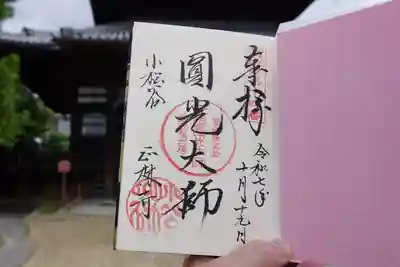 奉拝
令和七年
十月十九日
圓光大師
小松谷
正林寺